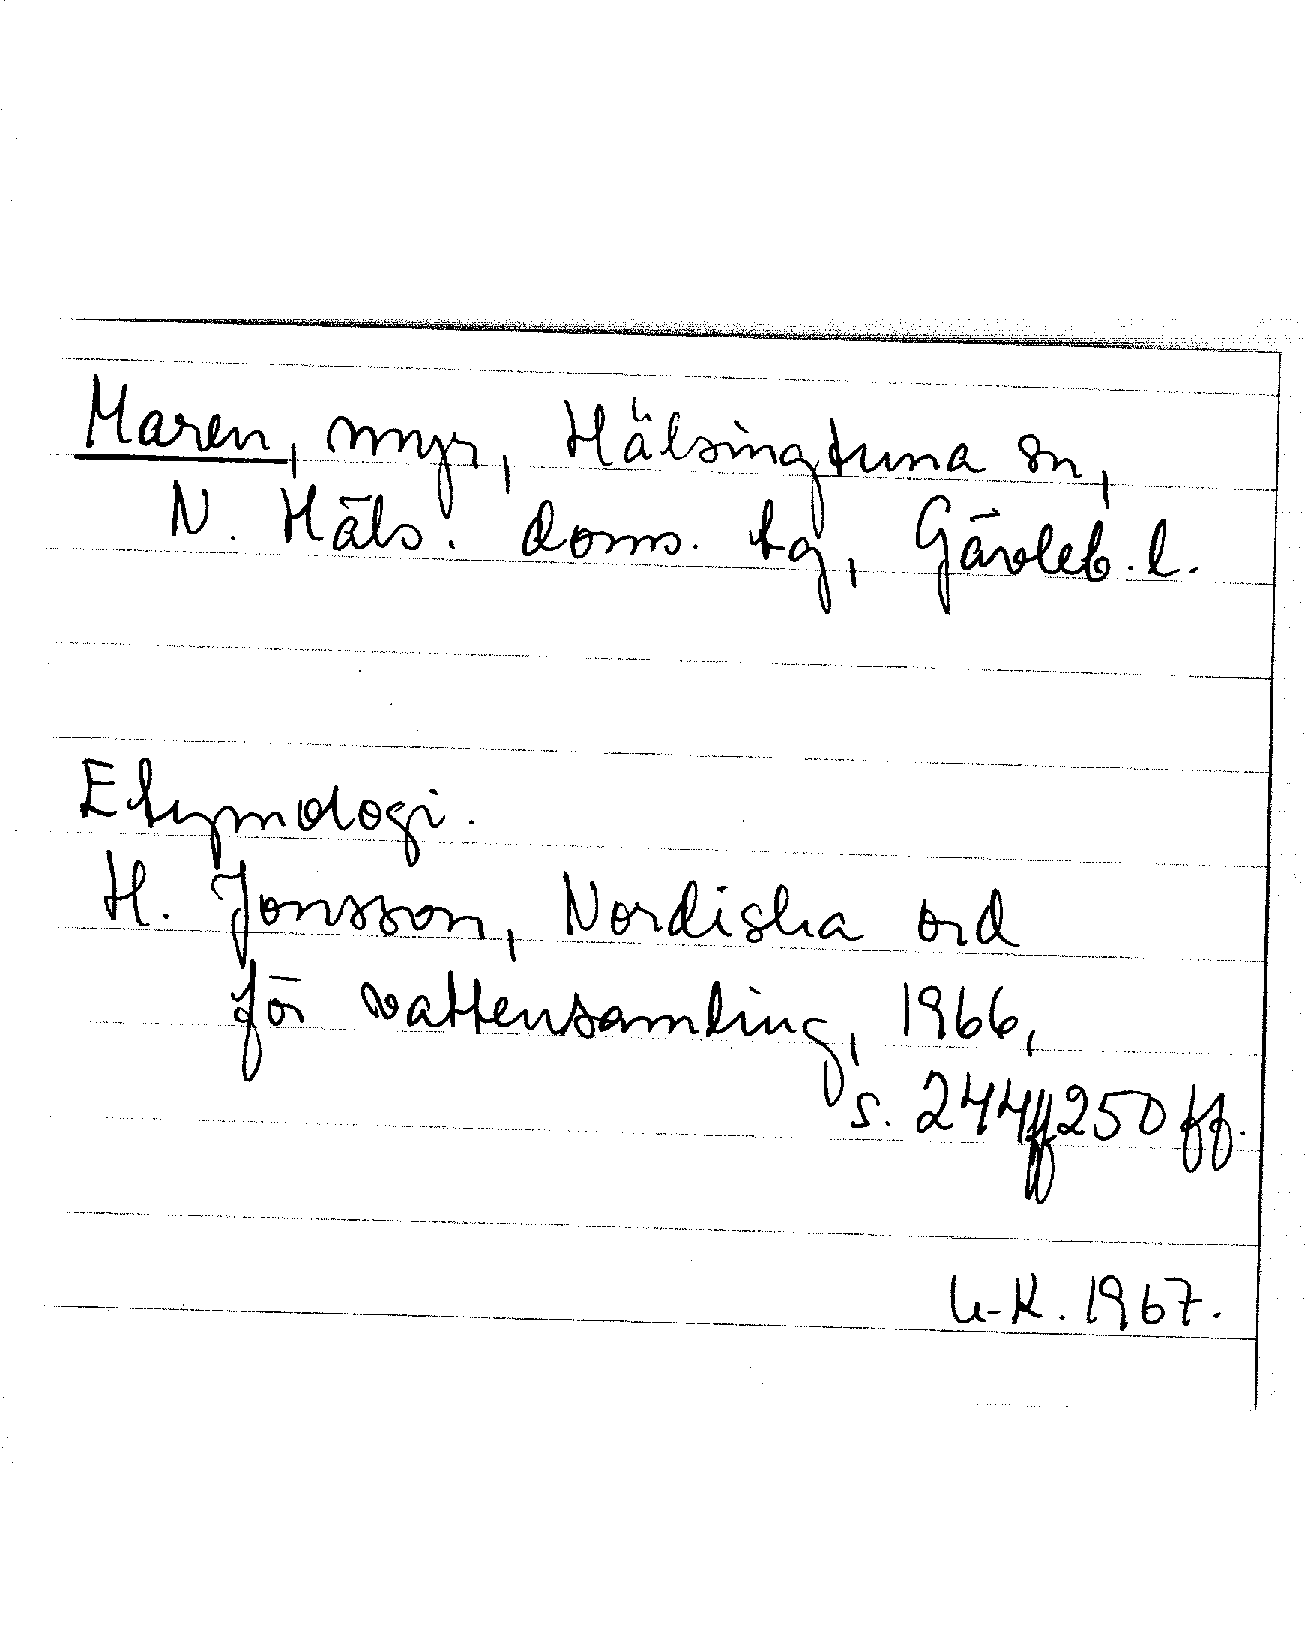 Maren, myr, Hälsingtuna sn,
N. Häls. doms. tg, Gävleb. l.
Etymologi.
H. Jonsson, Nordiska ord
för vattensamling, 1966,
s. 244ff 250 ff.
U-K. 1967.